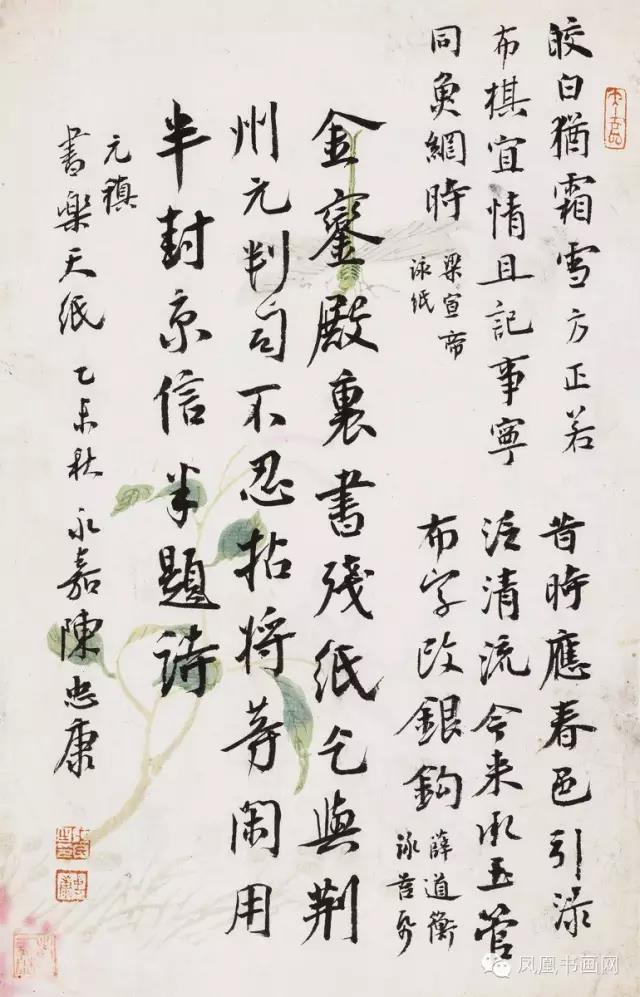 皎白猶霜雪方正若
布棋宜情且記事寧
同魚網時
梁宣帝
詠紙
昔時應春色引淥
泛清流今来承玉管
布字改銀鈎
薛道衡
詠苔紙
金鑾殿裏書殘紙乞與荆
州元判司不忍拈将等閑用
半封京信半題詩
元稹
書樂天紙 乙未秋 永嘉陳忠康
凤凰书画网